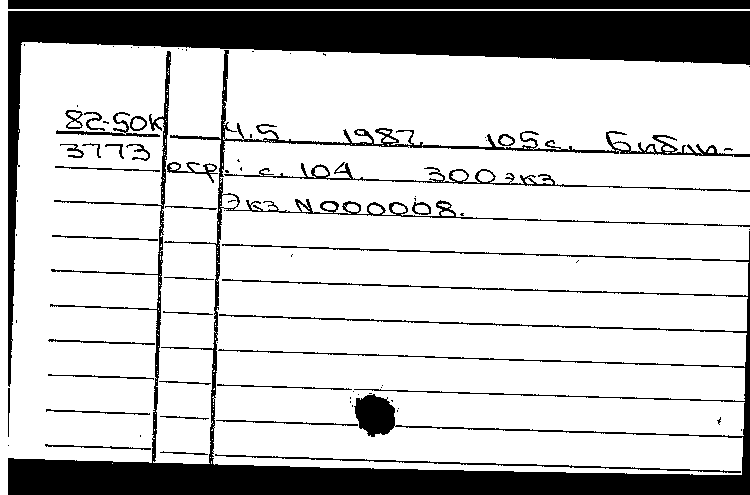 82-50К Ч.5. 1987. 105с. Библи-
3773 огр.: с. 104. 300 экз
Экз N000008.